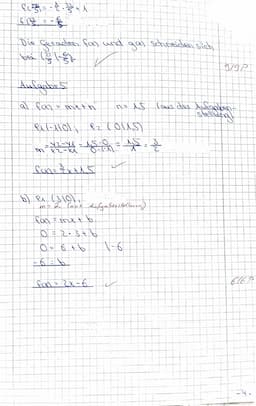 Die Geraden f(x) und g(x) schneiden sich
bei
9/9P
Aufgabe 5
a) f(x) = mx+n n = 1,5 (aus der Aufgaben-
stellung)
P1(-1|0) P2 (0|1,5)
m = y2-y1/x2-x1 = 1,5-0/0-(-1) = 1,5/1 = 3/2
f(x) = 3/2x+1,5
b) P1 (3|0)
m = 2 (aus Aufgabenstellung)
f(x) = mx + b
0 = 2·3+b
0 = 6+b |-6
-6 = b
f(x) = 2x-6
6/6P
-4-